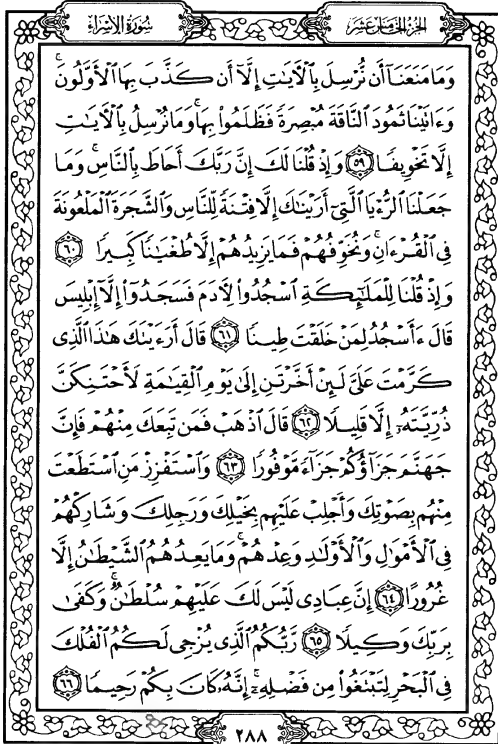 الجزء الخامس عشر
سورة الإسراء
وَمَا مَنَعَنَآ أَن نُّرْسِلَ بِٱلْءَايَٰتِ إِلَّآ أَن كَذَّبَ بِهَا ٱلْأَوَّلُونَ ۚ
وَءَاتَيْنَا ثَمُودَ ٱلنَّاقَةَ مُبْصِرَةً فَظَلَمُوا۟ بِهَا ۚ وَمَا نُرْسِلُ بِٱلْءَايَٰتِ
إِلَّا تَخْوِيفًا ٥٩ وَإِذْ قُلْنَا لَكَ إِنَّ رَبَّكَ أَحَاطَ بِٱلنَّاسِ ۚ وَمَا
جَعَلْنَا ٱلرُّءْيَا ٱلَّتِىٓ أَرَيْنَٰكَ إِلَّا فِتْنَةً لِّلنَّاسِ وَٱلشَّجَرَةَ ٱلْمَلْعُونَةَ
فِى ٱلْقُرْءَانِ ۚ وَنُخَوِّفُهُمْ فَمَا يَزِيدُهُمْ إِلَّا طُغْيَٰنًا كَبِيرًا ٦٠
وَإِذْ قُلْنَا لِلْمَلَٰٓئِكَةِ ٱسْجُدُوا۟ لِءَادَمَ فَسَجَدُوٓا۟ إِلَّآ إِبْلِيسَ
قَالَ ءَأَسْجُدُ لِمَنْ خَلَقْتَ طِينًا ٦١ قَالَ أَرَءَيْتَكَ هَٰذَا ٱلَّذِى
كَرَّمْتَ عَلَىَّ لَئِنْ أَخَّرْتَنِ إِلَىٰ يَوْمِ ٱلْقِيَٰمَةِ لَأَحْتَنِكَنَّ
ذُرِّيَّتَهُۥٓ إِلَّا قَلِيلًا ٦٢ قَالَ ٱذْهَبْ فَمَن تَبِعَكَ مِنْهُمْ فَإِنَّ
جَهَنَّمَ جَزَآؤُكُمْ جَزَآءً مَّوْفُورًا ٦٣ وَٱسْتَفْزِزْ مَنِ ٱسْتَطَعْتَ
مِنْهُم بِصَوْتِكَ وَأَجْلِبْ عَلَيْهِم بِخَيْلِكَ وَرَجِلِكَ وَشَارِكْهُمْ
فِى ٱلْأَمْوَٰلِ وَٱلْأَوْلَٰدِ وَعِدْهُمْ ۚ وَمَا يَعِدُهُمُ ٱلشَّيْطَٰنُ إِلَّا
غُرُورًا ٦٤ إِنَّ عِبَادِى لَيْسَ لَكَ عَلَيْهِمْ سُلْطَٰنٌ ۚ وَكَفَىٰ
بِرَبِّكَ وَكِيلًا ٦٥ رَّبُّكُمُ ٱلَّذِى يُزْجِى لَكُمُ ٱلْفُلْكَ
فِى ٱلْبَحْرِ لِتَبْتَغُوا۟ مِن فَضْلِهِۦٓ ۚ إِنَّهُۥ كَانَ بِكُمْ رَحِيمًا ٦٦
٢٨٨